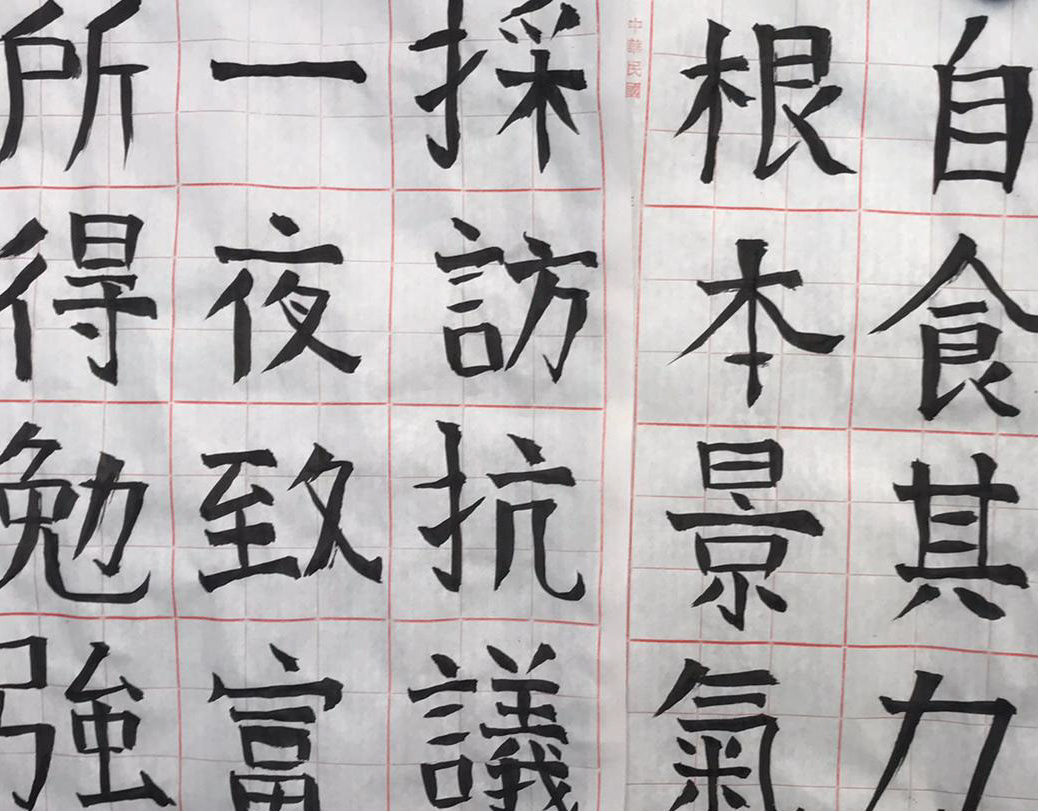 自食其力
根本景氣
中華民國
採訪抗議
一夜致富
所得勉強